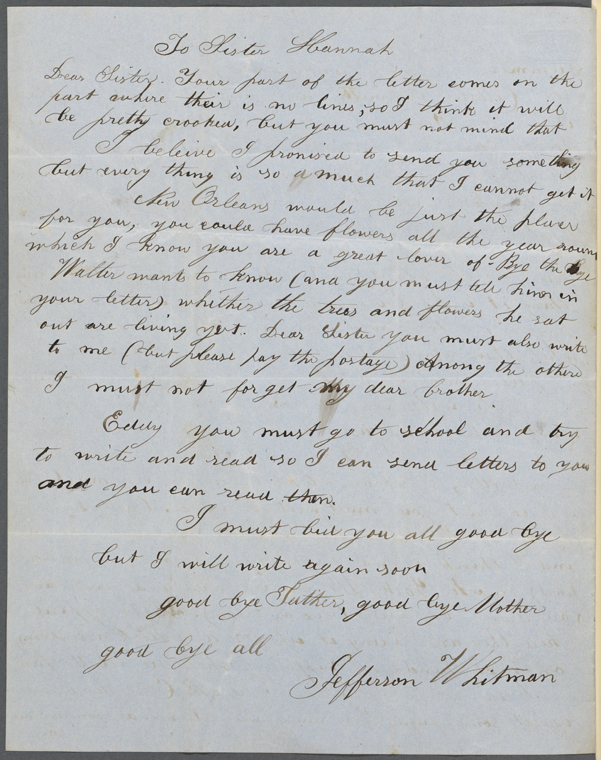 To Sister Hannah
Dear Sister. Your part of the letter comes on the
part where their is no lines, so I think it will
be pretty crooked, but you must not mind that
I beleive I promised to send you something
but every thing is so a much that I cannot get it
New Orleans would be just the place
for you, you could have flowers all the year round
which I know you are a great lover of Bye the bye
Walter wants to know (and you must tele him in
your letter) whether the trees and flowers he sat
out are living yet. Dear Sister you must also write
to me (but please pay the postage) Among the others
I must not forget my dear brother
Eddy you must go to school and try
to write and read so I can send letters to you
and you can read them.
I must bid you all good bye
but I will write again soon
good bye Father, good bye Mother
good bye all
Jefferson Whitman